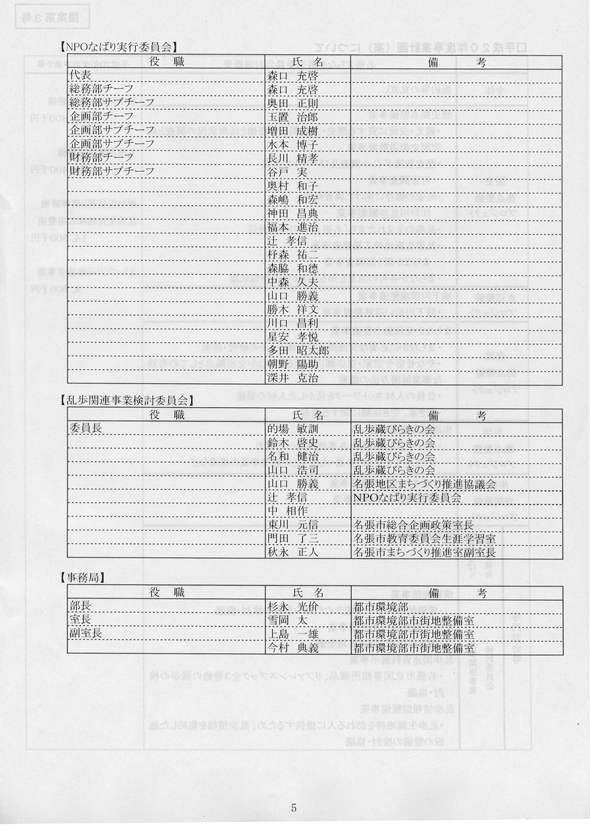 【NPOなばり実行委員会】
役 職 氏 名 備 考
代表 森口 充啓
総務部チーフ 森口 充啓
総務部サブチーフ 奥田 正則
企画部チーフ 玉置 治郎
企画部サブチーフ 増田 成樹
企画部サブチーフ 水本 博子
財務部チーフ 長川 精孝
財務部サブチーフ 谷戸 実
奥村 和子
森嶋 和宏
神田 昌典
福本 進治
辻 孝信
杼森 祐二
森脇 和徳
中森 久夫
山口 勝義
勝木 祥文
川口 昌利
星安 孝悦
多田 昭太郎
朝野 陽助
深井 克治
【乱歩関連事業検討委員会】
役 職 氏 名 備 考
委員長 的場 敏訓 乱歩蔵びらきの会
鈴木 啓史 乱歩蔵びらきの会
名和 健治 乱歩蔵びらきの会
山口 浩司 乱歩蔵びらきの会
山口 勝義 名張地区まちづくり推進協議会
辻 孝信 NPOなばり実行委員会
中 相作
東川 元信 名張市総合企画政策室長
門田 了三 名張市教育委員会生涯学習室
秋永 正人 名張市まちづくり推進室副室長
【事務局】
役 職 氏 名 備 考
部長 杉永 光价 都市環境部
室長 雪岡 太 都市環境部市街地整備室
副室長 上島 一雄 都市環境部市街地整備室
今村 典義 都市環境部市街地整備室
5